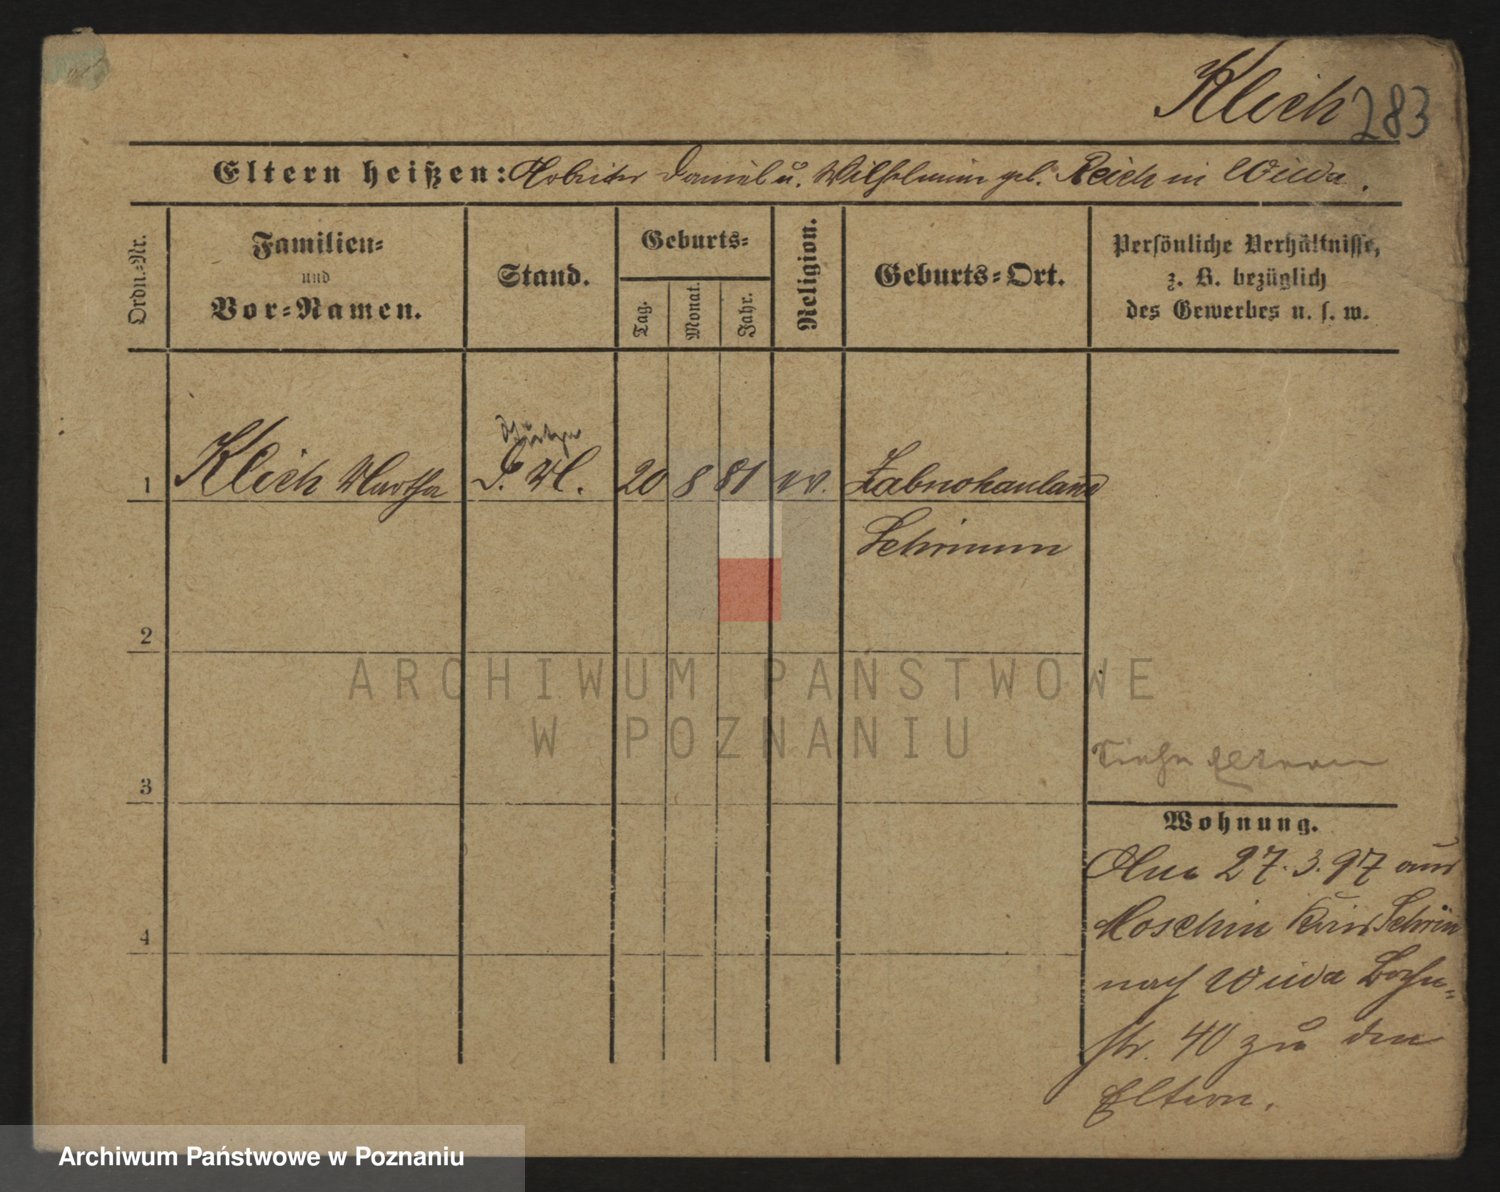 Klich 283
Eltern heißen: Arbeiter Daniel u. Wilhelmine geb. Reich in Wilda.
Ordn.-Nr.
Familien-
und
Vor-Namen.
Stand.
Geburts-
Tag.
Monat.
Jahr.
Religion.
Geburts-Ort.
Persönliche Verhältnisse,
z. B. bezüglich
des Gewerbes u. s. w.
1 Klich Martha 20 8 81 ev. Zabnohauland
Schrimm
2
3
4
siehe Eltern
Wohnung.
Am 27.3.97 aus
Moschin Kreis Schrim
nach Wilda Bahn-
str. 40 zu den
Eltern.
ARCHIWUM PAŃSTWOWE
W POZNANIU
Archiwum Państwowe w Poznaniu